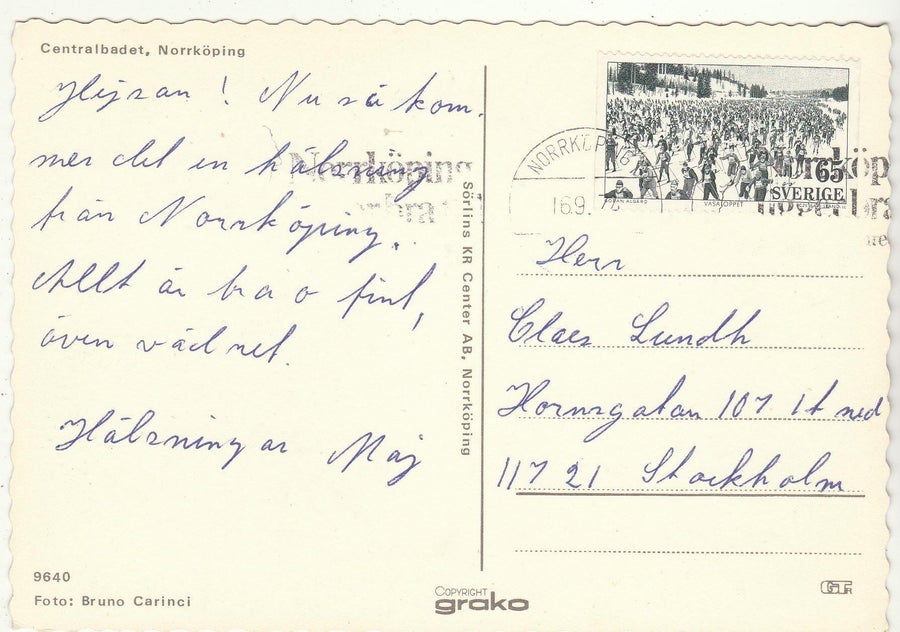 Centralbadet, Norrköping
Hejsan! Nu så kom.
mer det en hälsning
från Norrköping.
Allt är bra o fint,
även vädret.
Hälsningar Maj
9640
Foto: Bruno Carinci
Sörlins KR Center AB, Norrköping
Norrköping
NORRKÖPING
16.9.
65
SVERIGE
GÖRAN ALGÅRD VASALOPPET
Herr
Claes Lundh
Hornsgatan 107 1t ned
117 21 Stockholm
COPYRIGHT
grako